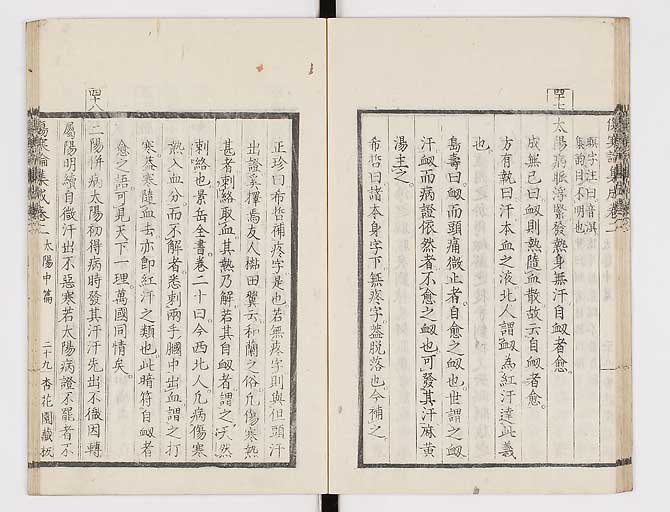 傷寒論集成卷二
四十七
太陽病脈浮緊發熱身無汗自衄者愈
成無己曰衄則熱隨血散故云自衄者愈
方有執曰汗本血之液北人謂衄為紅汗達此義
也
島壽曰衄而頭痛微止者自愈之衄也世謂之衄
汗衄而病證依然者不愈之衄也可發其汗麻黃
湯主之
希哲曰諸本身字下無疼字蓋脱落也今補之
正珍曰希哲補疼字是也若無疼字則與但頭汗
出證奚擇焉友人樾田翼云和蘭之俗凡傷寒熱
甚者刺絡取血其熱乃解若其自衄者謂之天然
刺絡也景岳全書卷二十曰今西北人凡病傷寒
熱入血分而不解者悉刺兩手膕中出血謂之打
寒蓋寒隨血去亦即紅汗之類也此暗符自衄者
愈之語可見天下一理萬國同情矣
四十八
二陽併病太陽初得病時發其汗汗先出不徹因轉
屬陽明續自微汗出不惡寒若太陽病證不罷者不
傷寒論集成卷二 太陽中篇 二十九 杏花園藏板